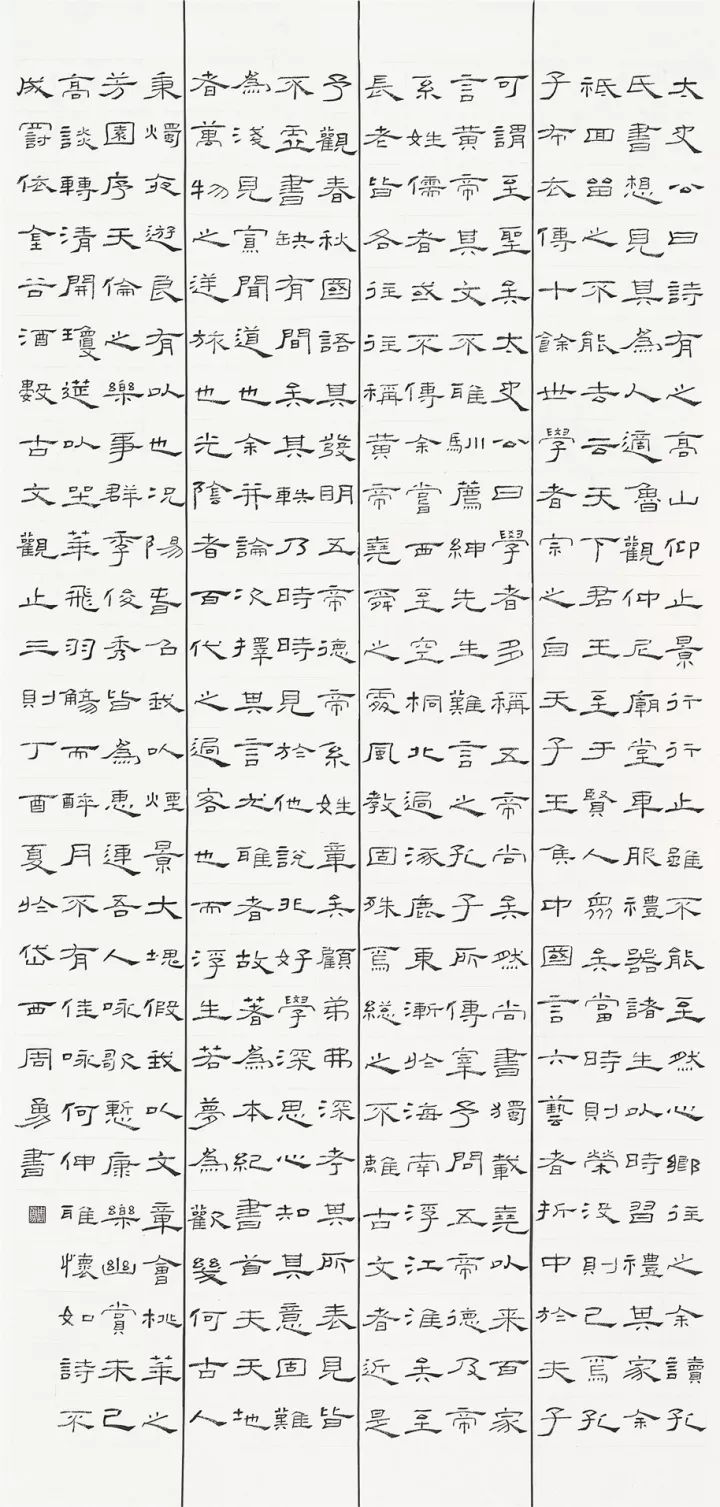 太史公曰詩有之高山仰止景行行止雖不能至然心鄉往之余讀孔
氏書想見其為人適魯觀仲尼廟堂車服禮器諸生以時習禮其家余
祗回留之不能去云天下君王至于賢人眾矣當時則榮沒則已焉孔
子布衣傳十餘世學者宗之自天子王侯中國言六藝者折中於夫子
可謂至聖矣太史公曰學者多稱五帝尚矣然尚書獨載堯以來百家
言黃帝其文不雅馴薦紳先生難言之孔子所傳宰予問五帝德及帝
系姓儒者或不傳余嘗西至空桐北過涿鹿東漸於海南浮江淮矣至
長老皆各往往稱黃帝堯舜之處風教固殊焉總之不離古文者近是
予觀春秋國語其發明五帝德帝系姓章矣顧弟弗深考其所表見皆
不虛書缺有間矣其軼乃時時見於他說非好學深思心知其意固難
為淺見寡聞道也余并論次擇其言尤雅者故著為本紀書首夫天地
者萬物之逆旅也光陰者百代之過客也而浮生若夢為歡幾何古人
秉燭夜遊良有以也況陽春召我以煙景大塊假我以文章會桃華之
芳園序天倫之樂事群季俊秀皆為惠連吾人詠歌慙康樂幽賞未已
高談轉清開瓊筵以坐華飛羽觴而醉月不有佳詠何伸雅懷如詩不
成罰依金谷酒數古文觀止三則丁酉夏於岱西周勇書